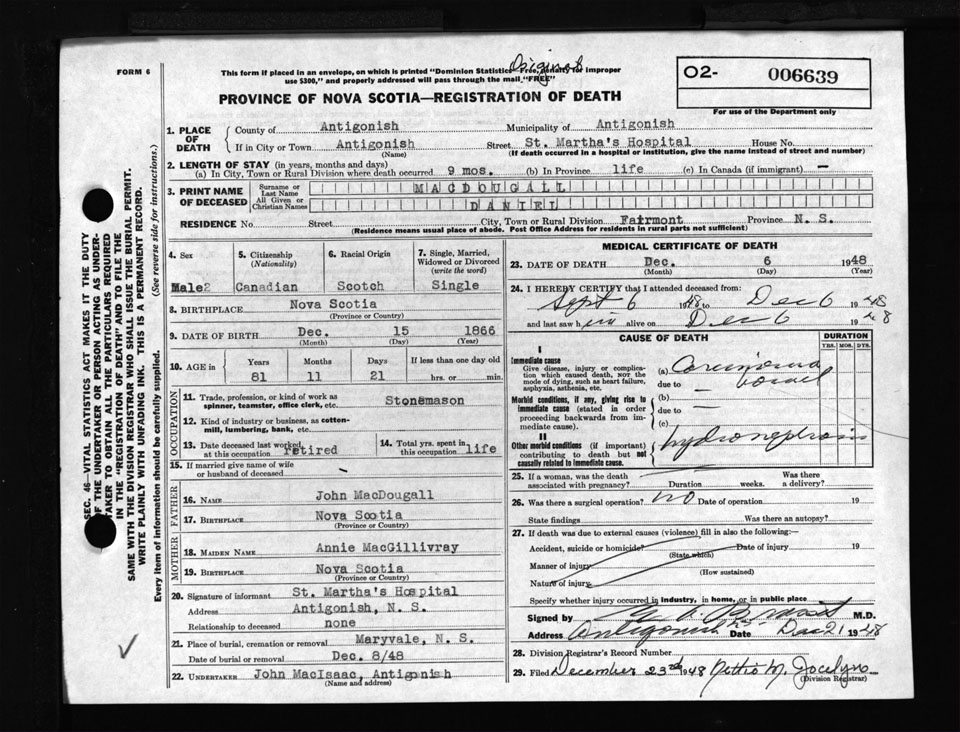 FORM 6
This form if placed in an envelope, on which is printed "Dominion Statistics—Free, penalty for improper
use $300," and properly addressed will pass through the mail "FREE"
Original
O2- 006639
For use of the Department only
PROVINCE OF NOVA SCOTIA—REGISTRATION OF DEATH
SEC. 46—VITAL STATISTICS ACT MAKES IT THE DUTY
OF THE UNDERTAKER OR PERSON ACTING AS UNDER-
TAKER TO OBTAIN ALL THE PARTICULARS REQUIRED
IN THE "REGISTRATION OF DEATH" AND TO FILE THE
SAME WITH THE DIVISION REGISTRAR WHO SHALL ISSUE THE BURIAL PERMIT.
WRITE PLAINLY WITH UNFADING INK. THIS IS A PERMANENT RECORD.
Every item of information should be carefully supplied. (See reverse side for instructions.)
1. PLACE OF DEATH County of Antigonish Municipality of Antigonish
If in City or Town Antigonish Street St. Martha's Hospital House No.
(Name) (If death occurred in a hospital or institution, give the name instead of street and number)
2. LENGTH OF STAY (in years, months and days)
(a) In City, Town or Rural Division where death occurred 9 mos. (b) In Province life (c) In Canada (if immigrant) -
3. PRINT NAME OF DECEASED Surname or Last Name MACDOUGALL
All Given or Christian Names DANIEL
RESIDENCE No. Street City, Town or Rural Division Fairmont Province N. S.
(Residence means usual place of abode. Post Office Address for residents in rural parts not sufficient)
4. Sex 5. Citizenship (Nationality) 6. Racial Origin 7. Single, Married, Widowed or Divorced (write the word)
Male2 Canadian Scotch Single
8. BIRTHPLACE Nova Scotia
(Province or Country)
9. DATE OF BIRTH Dec. 15 1866
(Month) (Day) (Year)
10. AGE IN Years Months Days If less than one day old
81 11 21 hrs. or min.
OCCUPATION
11. Trade, profession, or kind of work as spinner, teamster, office clerk, etc. Stonemason
12. Kind of industry or business, as cotton-mill, lumbering, bank, etc.
13. Date deceased last worked at this occupation retired 14. Total yrs. spent in this occupation life
15. If married give name of wife or husband of deceased
FATHER
16. NAME John MacDougall
17. BIRTHPLACE Nova Scotia
(Province or Country)
MOTHER
18. MAIDEN NAME Annie MacGillivray
19. BIRTHPLACE Nova Scotia
(Province or Country)
20. Signature of informant St. Martha's Hospital
Address Antigonish, N. S.
Relationship to deceased none
21. Place of burial, cremation or removal Maryvale, N. S.
Date of burial or removal Dec. 8/48
22. UNDERTAKER John MacIsaac, Antigonish
(Name and address)
MEDICAL CERTIFICATE OF DEATH
23. DATE OF DEATH Dec. 6 1948
(Month) (Day) (Year)
24. I HEREBY CERTIFY that I attended deceased from:
Sept 6 1948 to Dec 6 1948
and last saw him alive on Dec 6 1948
CAUSE OF DEATH DURATION
YRS. MOS. DYS.
I
Immediate cause
Give disease, injury or complica-
tion which caused death, NOT the
mode of dying, such as heart failure,
asphyxia, asthenia, etc.
(a) Carcinoma
due to bowel
Morbid conditions, if any, giving rise to
immediate cause (stated in order
proceeding backwards from im-
mediate cause).
(b) —
due to —
(c)
II
Other morbid conditions (if important)
contributing to death but not
causally related to immediate cause.
hydronephrosis
25. If a woman, was the death associated with pregnancy? Duration weeks. Was there a delivery?
26. Was there a surgical operation? NO Date of operation 19
State findings Was there an autopsy?
27. If death was due to external causes (violence) fill in also the following:—
Accident, suicide or homicide? Date of injury 19
(State which)
Manner of injury
(How sustained)
Nature of injury
Specify whether injury occurred in industry, in home, or in public place
Signed by M.D.
Address Antigonish NS Date Dec 21 1948
28. Division Registrar's Record Number
29. Filed December 23rd 1948 Nettie M. Jocelyn
(Division Registrar)